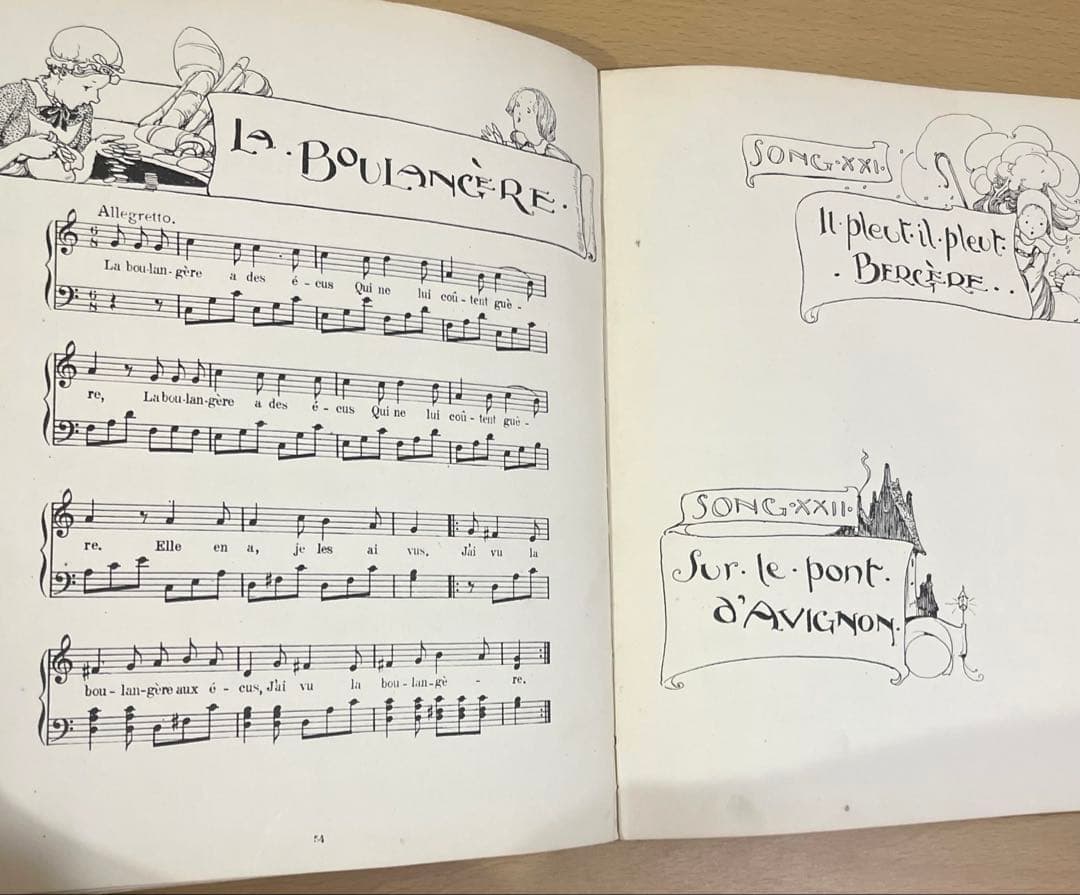 LA · BOULANGÈRE ·
Allegretto.
La bou-lan-gère a des é - cus Qui ne lui coû - tent guè -
re, La bou-lan-gère a des é - cus Qui ne lui coû - tent guè -
re. Elle en a, je les ai vus. J'ai vu la
bou - lan-gère aux é - cus, J'ai vu la bou - lan-gè - re.
54
SONG·XXI·
Il·pleut·il·pleut·
· BERGÈRE · ·
SONG·XXII·
Sur·le·pont·
d'AVIGNON·